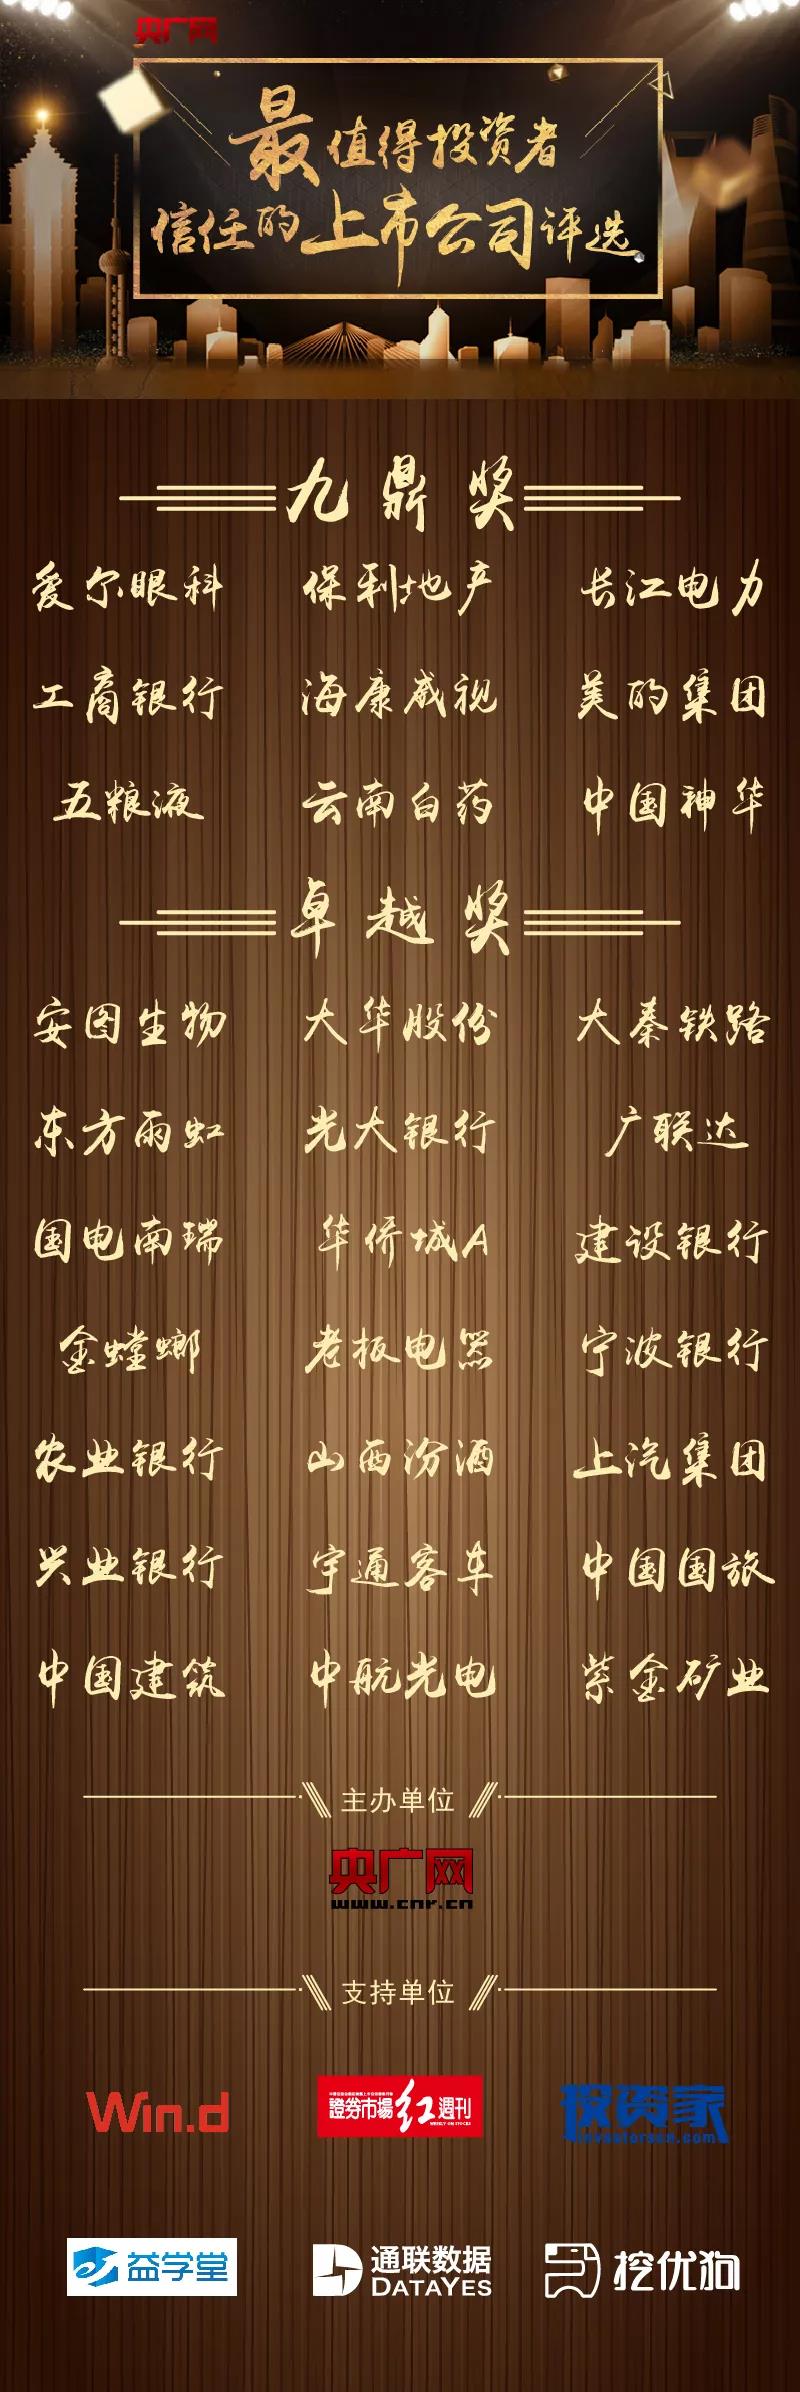 央广网
最值得投资者
信任的上市公司评选
九鼎奖
爱尔眼科 保利地产 长江电力
工商银行 海康威视 美的集团
五粮液 云南白药 中国神华
卓越奖
安图生物 大华股份 大秦铁路
东方雨虹 光大银行 广联达
国电南瑞 华侨城A 建设银行
金螳螂 老板电器 宁波银行
农业银行 山西汾酒 上汽集团
兴业银行 宇通客车 中国国旅
中国建筑 中航光电 紫金矿业
主办单位
央广网
www.cnr.cn
支持单位
Win.d 證券市場红週刊 投资家
WEEKLY ON STOCKS
益学堂 通联数据 挖优狗
DATAYES